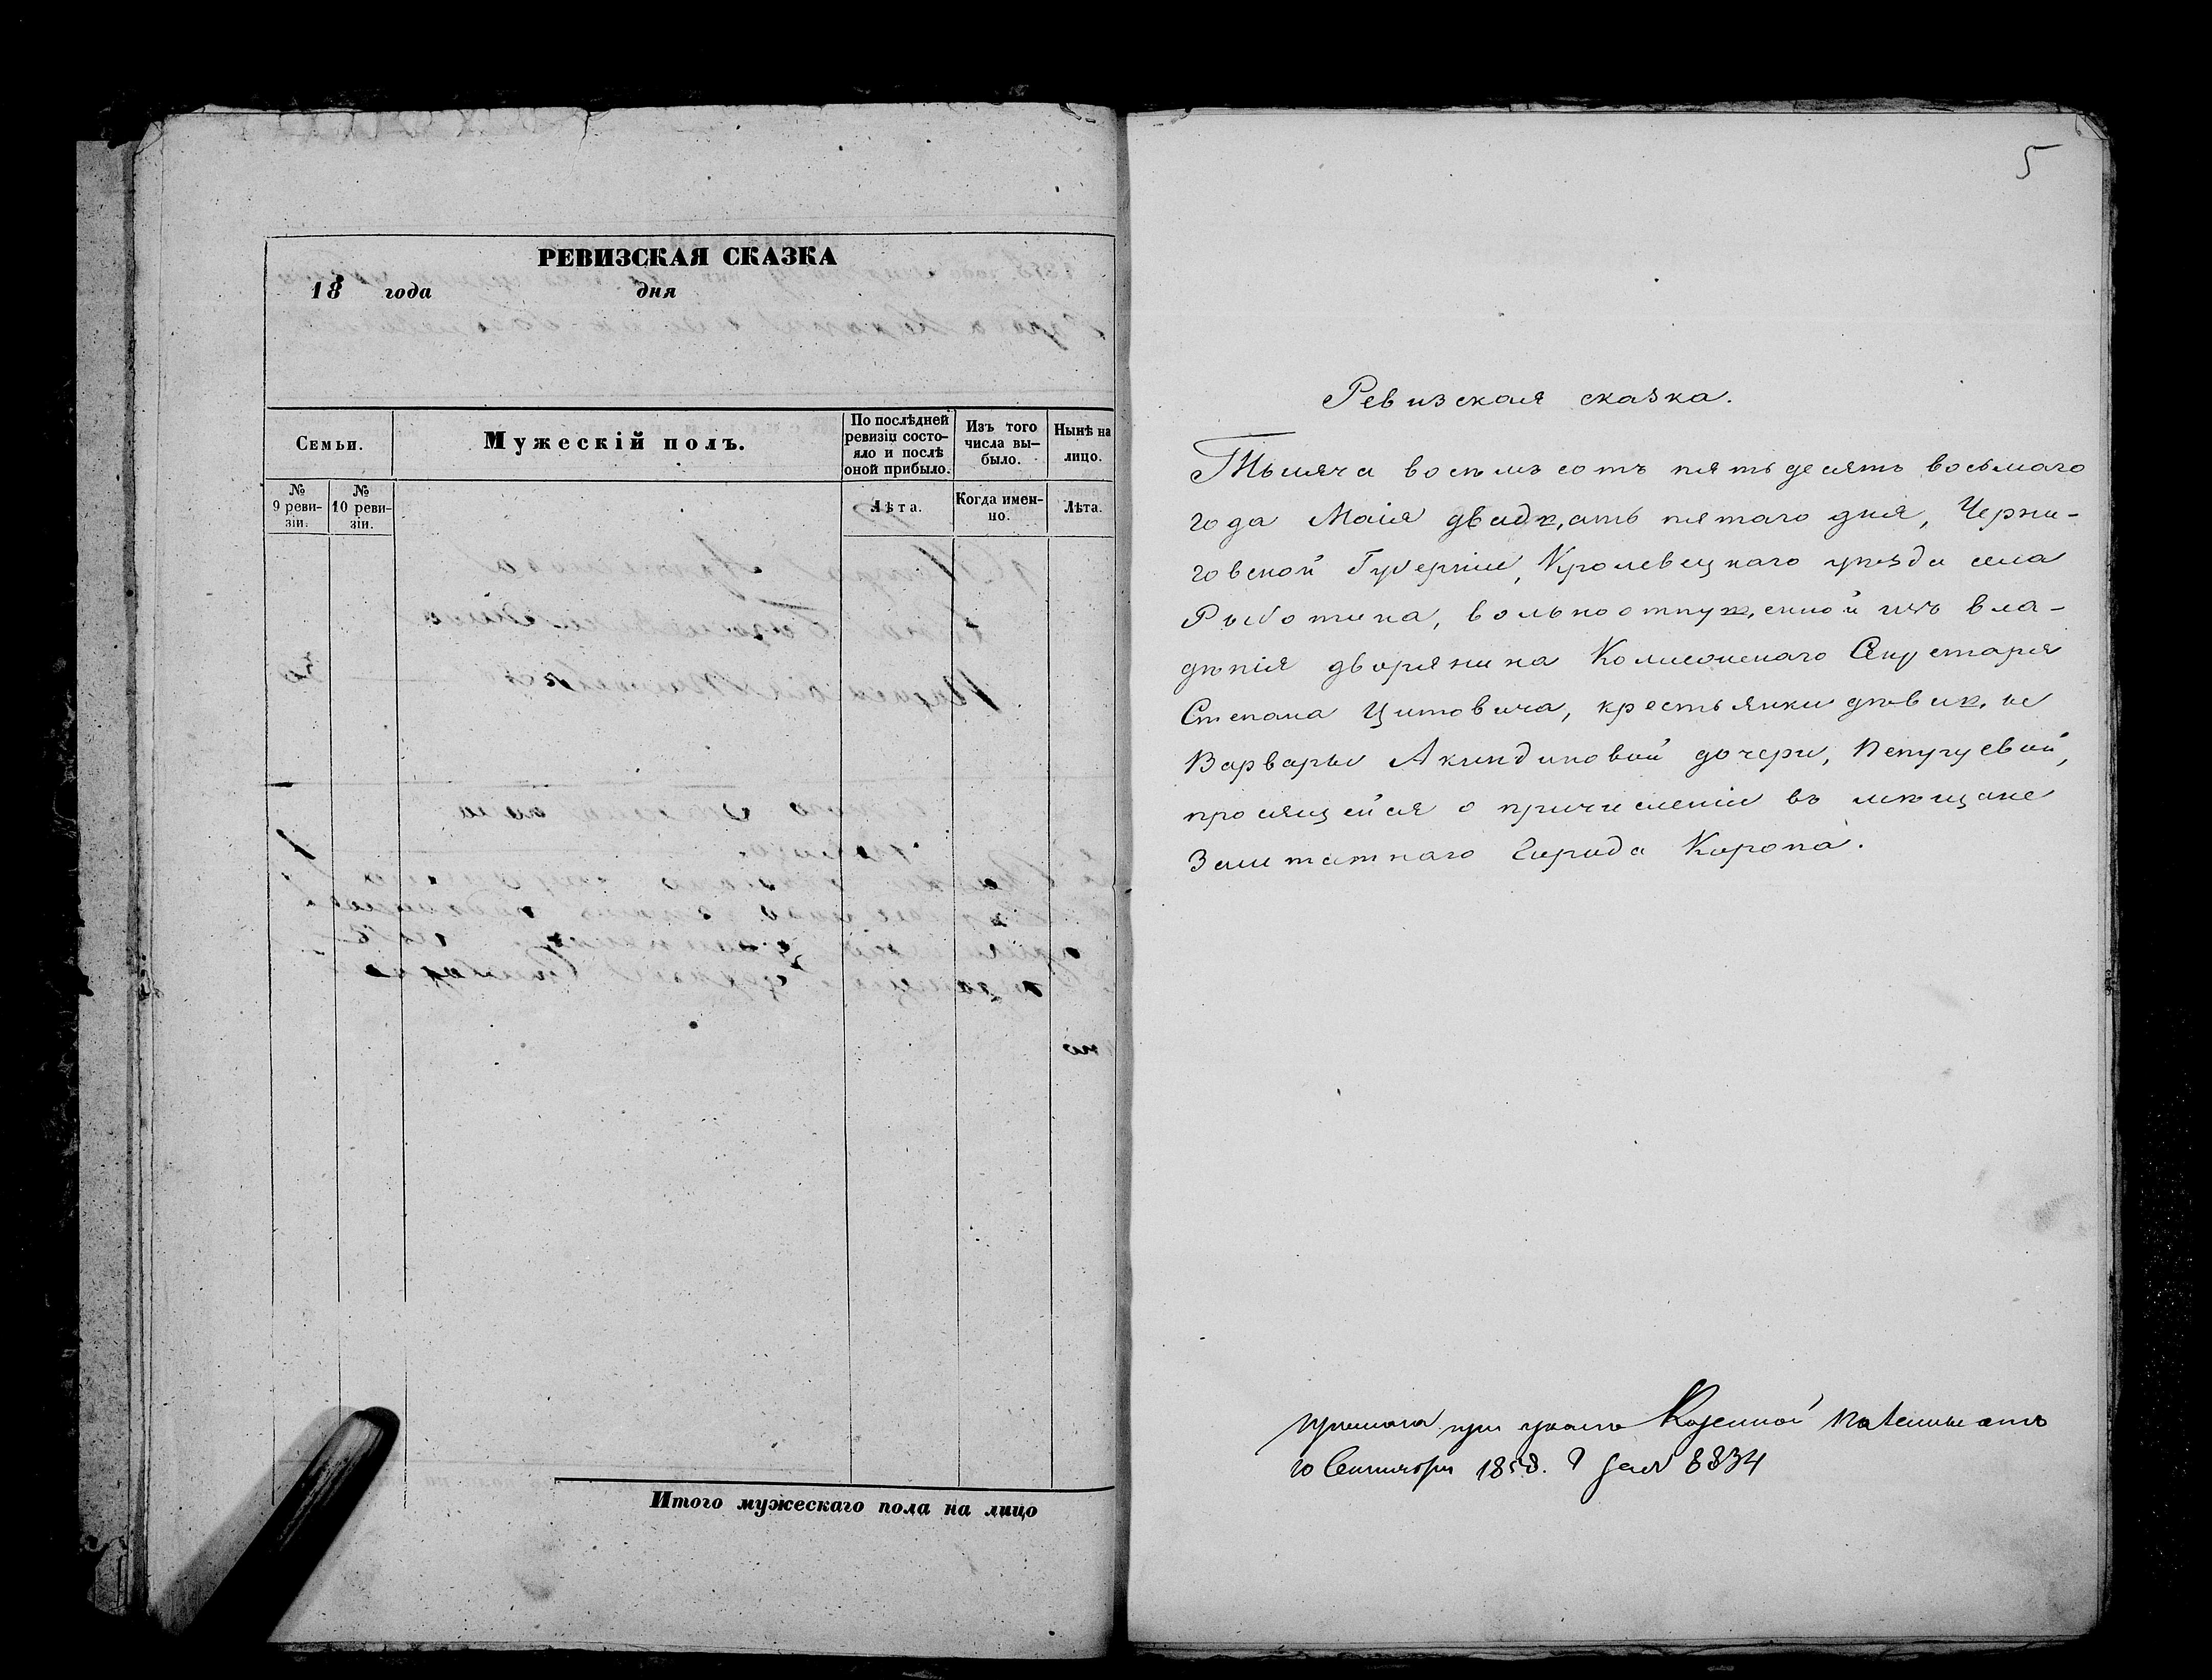 РЕВИЗСКАЯ СКАЗКА
18 года дня
Семьи.
Мужескій полъ.
По послѣдней ревизіи состо-
яло и послѣ
оной прибыло.
Изъ того
числа вы-
было.
Нынѣ на
лицо.
№
9 реви-
зіи.
№
10 реви-
зіи.
Лѣта.
Когда имен-
но.
Лѣта.
Итого мужескаго пола на лицо
5
Ревизская сказка.
Тысяча восемь сотъ пятьдесятъ восьмаго
года Маія двадцать пятаго дня, Черни-
говской Губерніи, Кролевецкаго уѣзда села
Рыботина, вольноотпущенной изъ вла-
дѣнія дворянина Колиескаго Секретаря
Степана Цитовича, крестьянки дѣвицы
Варвары Акиндиновой дочери,
просящейся о причисленіи въ мѣщане
Заштатнаго Города Коропа.
при указѣ Казенной Палаты отъ
10 Сентября 1858. 8834